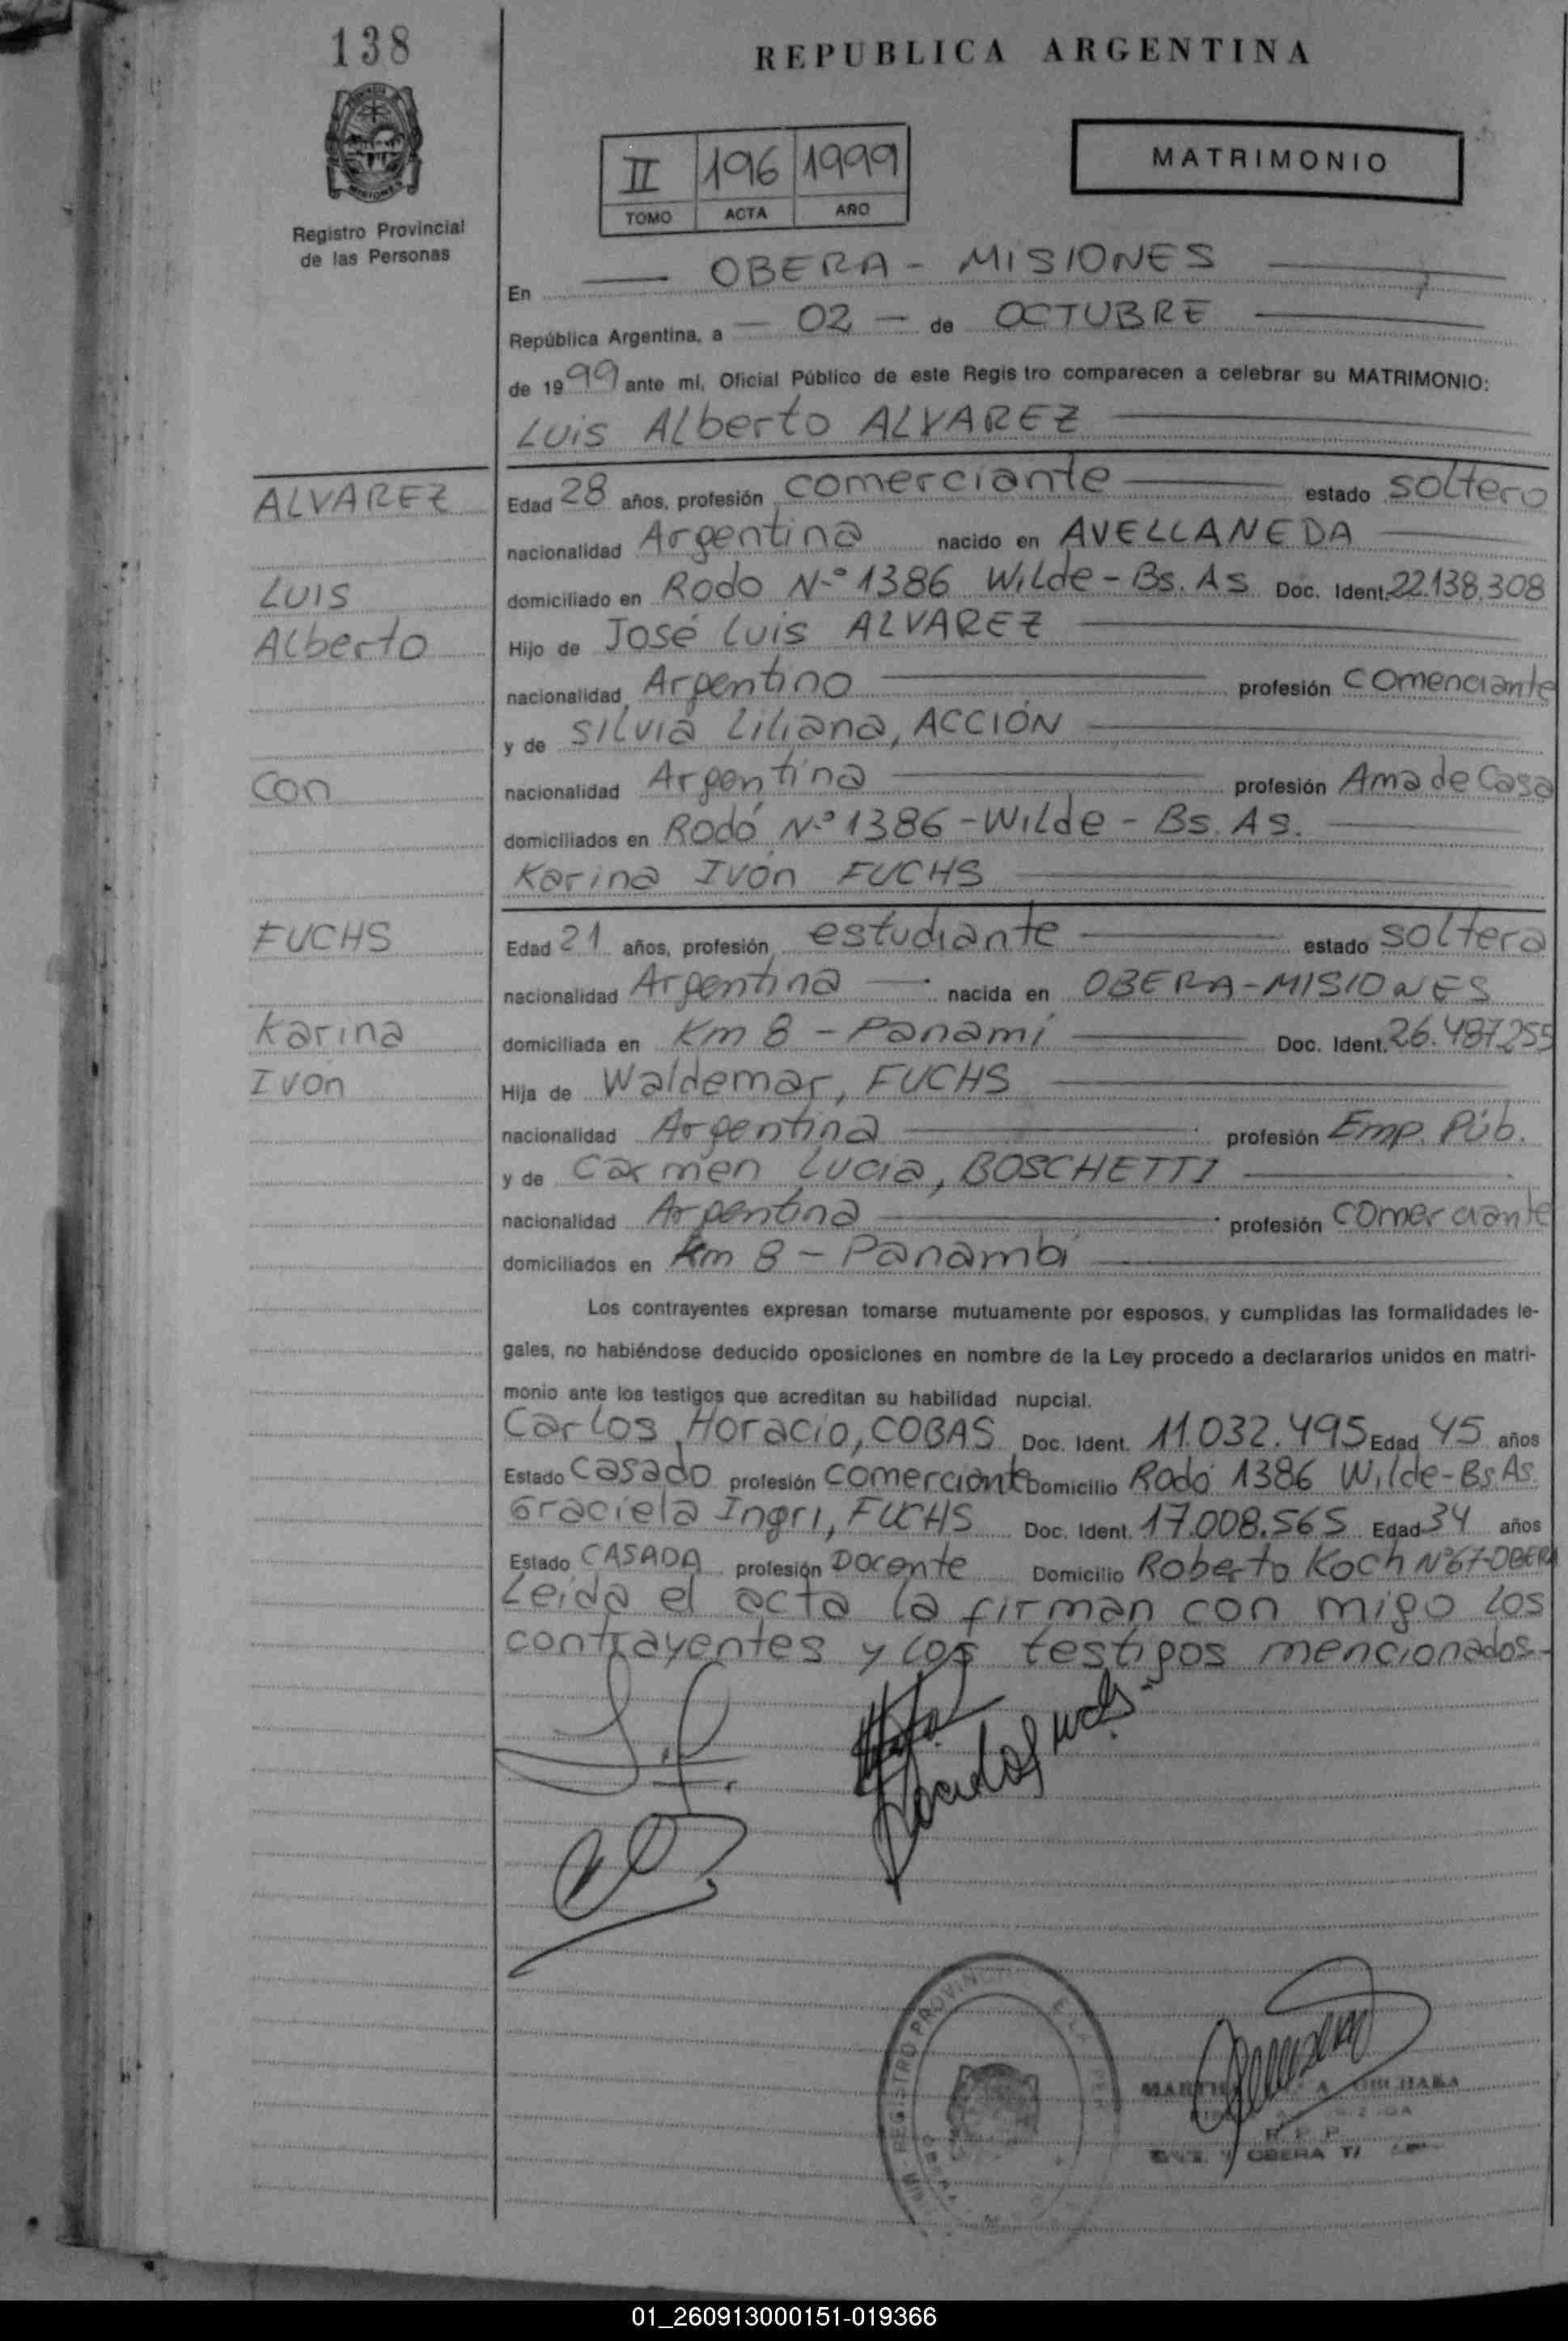 138
REPUBLICA ARGENTINA
II 196 1999
TOMO ACTA AÑO
MATRIMONIO
Registro Provincial
de las Personas
En OBERA - MISIONES
República Argentina, a - 02 - de OCTUBRE
de 1999 ante mí, Oficial Público de este Registro comparecen a celebrar su MATRIMONIO:
Luis Alberto ALVAREZ
ALVAREZ
Edad 28 años, profesión comerciante estado soltero
nacionalidad Argentina nacido en AVELLANEDA
LUIS
domiciliado en Rodo N.º 1386 Wilde - Bs. As Doc. Ident. 22.138.308
Alberto
Hijo de José Luis ALVAREZ
nacionalidad Argentino profesión comenciante
y de Silvia Liliana, ACCIÓN
Con
nacionalidad Argentina profesión Ama de Casa
domiciliados en Rodó N.º 1386 - Wilde - Bs. As.
Karina Ivón FUCHS
FUCHS
Edad 21 años, profesión estudiante estado soltera
nacionalidad Argentina nacida en OBERA - MISIONES
Karina
domiciliada en Km 8 - Panamí Doc. Ident. 26.487.255
Ivón
Hija de Waldemar, FUCHS
nacionalidad Argentina profesión Emp. Púb.
y de Carmen Lucia, BOSCHETTI
nacionalidad Argentina profesión comerciante
domiciliados en Km 8 - Panambí
Los contrayentes expresan tomarse mutuamente por esposos, y cumplidas las formalidades le-
gales, no habiéndose deducido oposiciones en nombre de la Ley procedo a declararlos unidos en matri-
monio ante los testigos que acreditan su habilidad nupcial.
Carlos Horacio, COBAS Doc. Ident. 11.032.495 Edad 45 años
Estado Casado profesión comerciante Domicilio Rodó 1386 Wilde - Bs As.
Graciela Ingri, FUCHS Doc. Ident. 17.008.565 Edad 34 años
Estado CASADA profesión Docente Domicilio Roberto Koch Nº 67-OBERA
Leida el acta la firman con migo los
contrayentes y los testigos mencionados-
REGISTRO PROVINCIAL
R. P. P.
OBERA
01_260913000151-019366